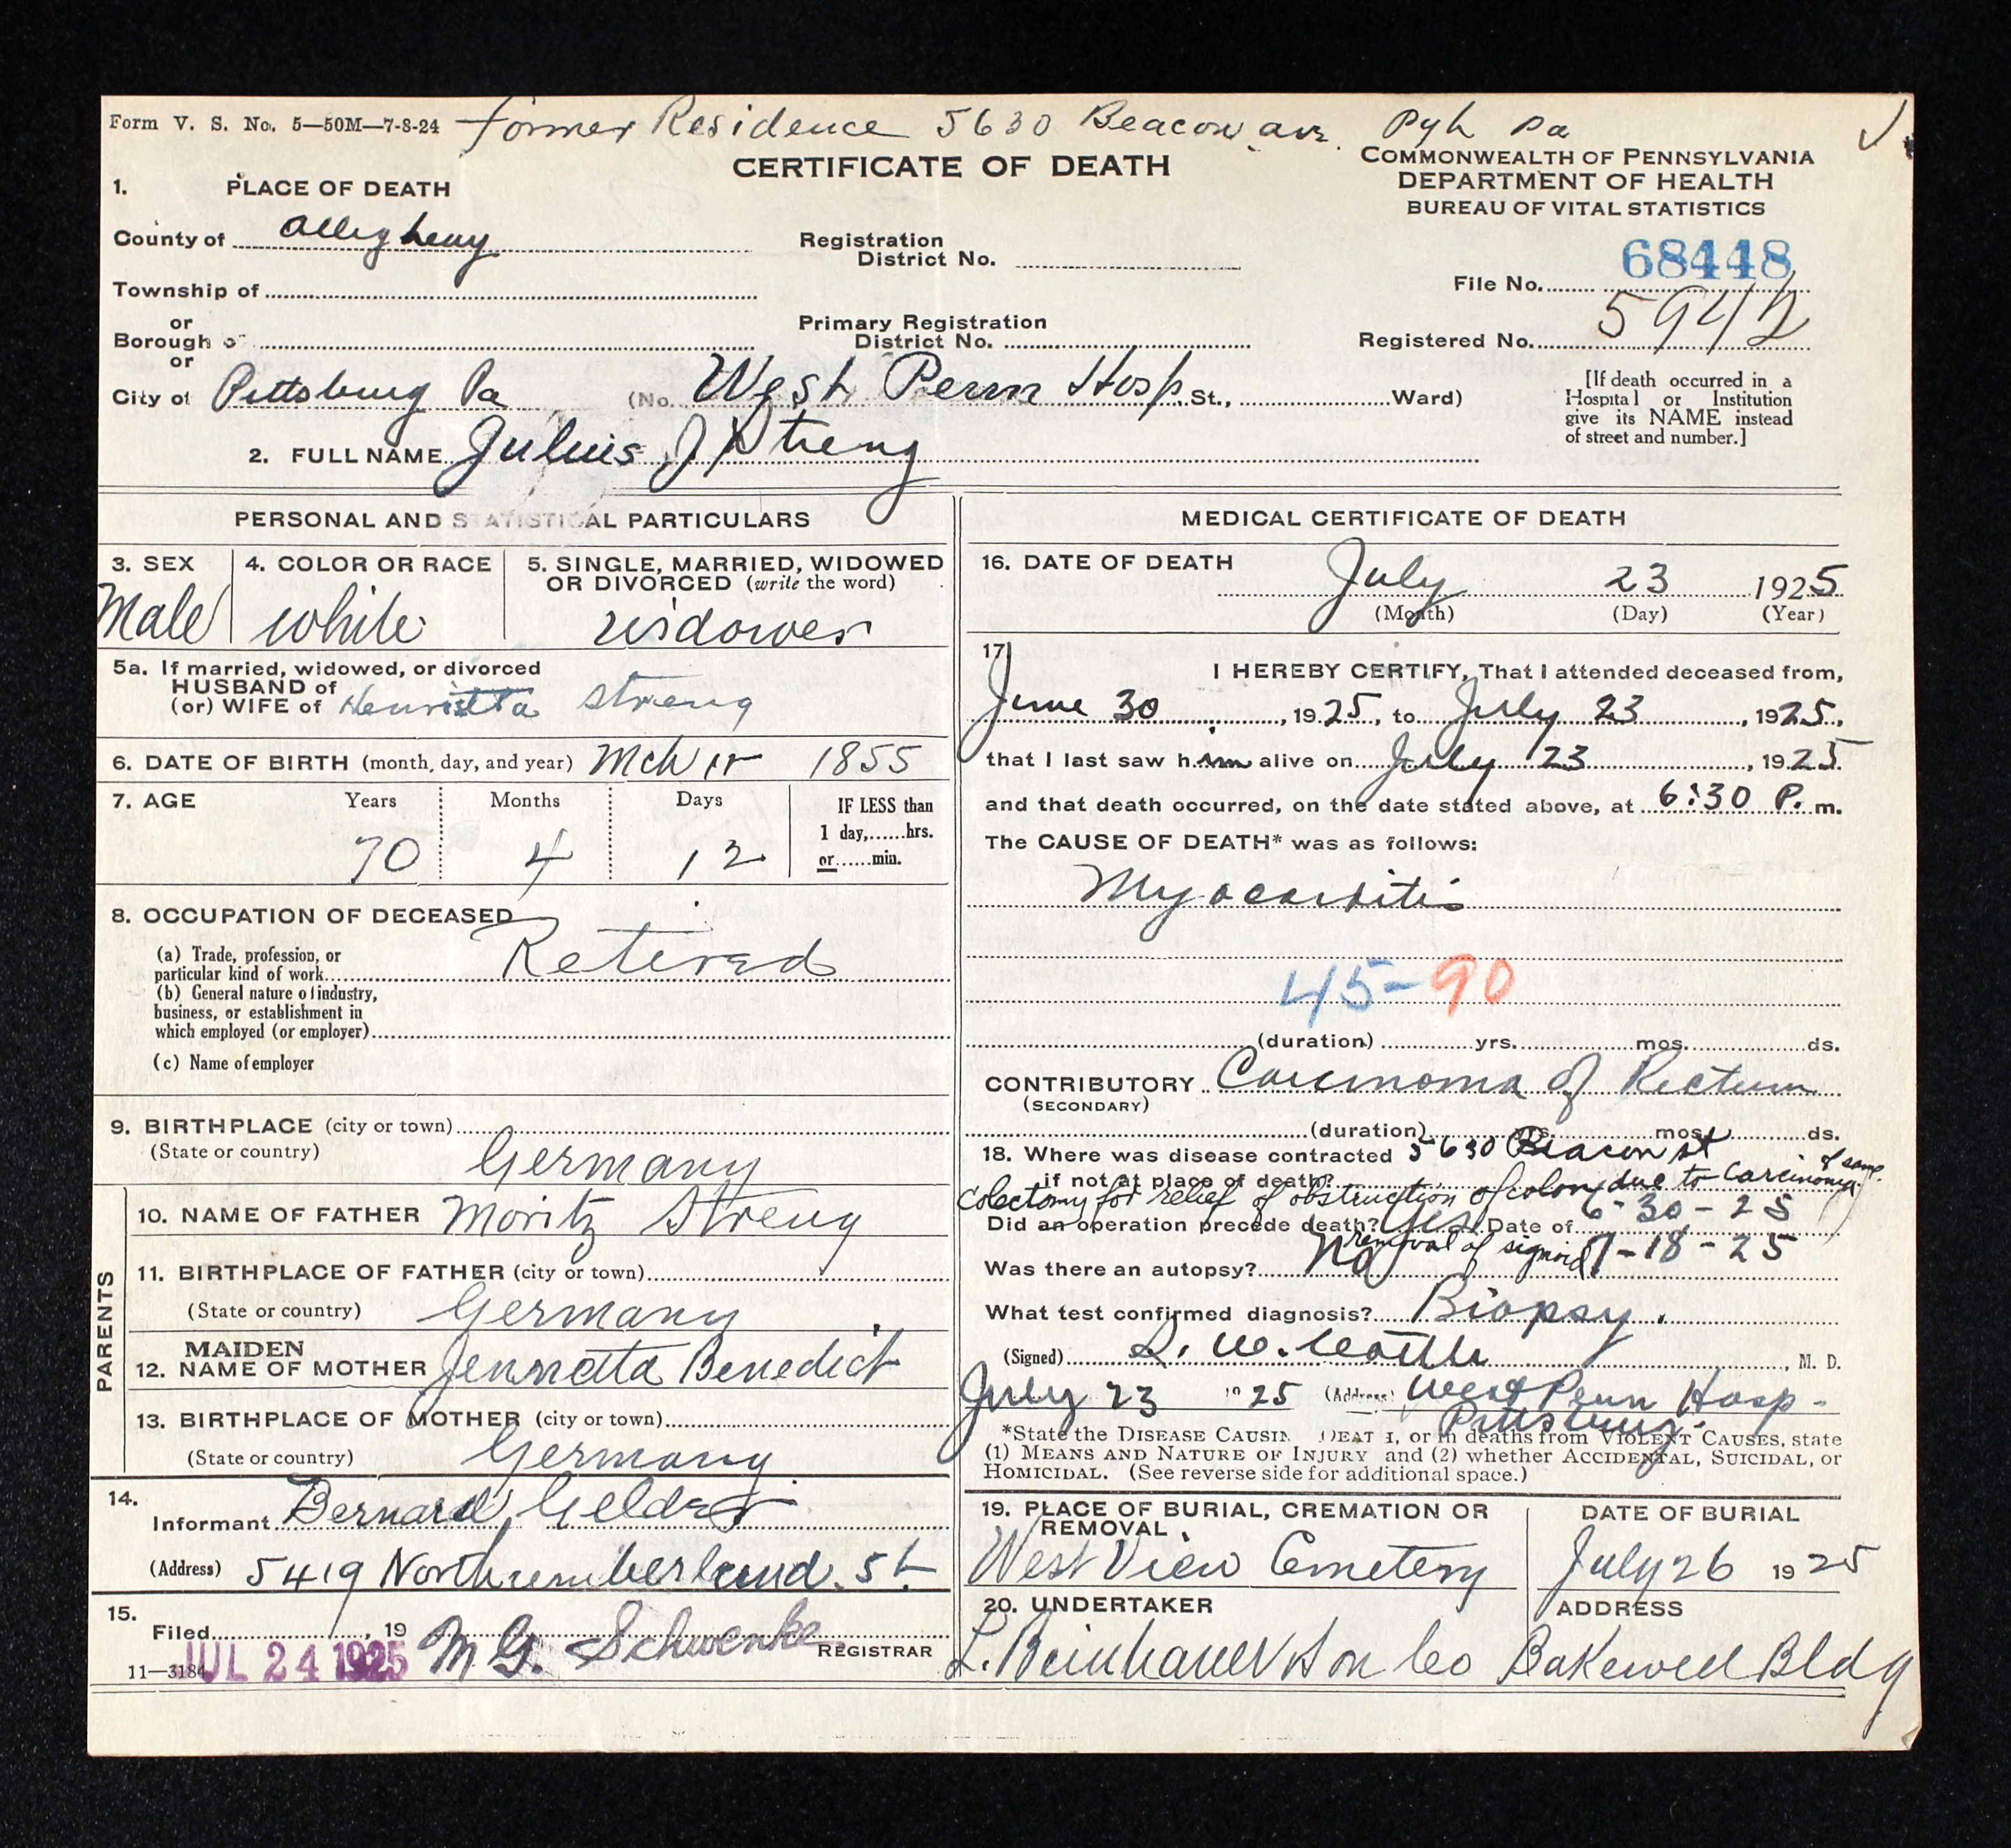 Form V. S. No. 5—50M—7-8-24 former Residence 5630 Beacon ave. Pgh Pa
CERTIFICATE OF DEATH
COMMONWEALTH OF PENNSYLVANIA
DEPARTMENT OF HEALTH
BUREAU OF VITAL STATISTICS
1. PLACE OF DEATH
County of Allegheny
Registration
District No.
68448
File No.
Township of
or
Borough of
Primary Registration
District No.
5942
Registered No.
or
City of Pittsburg Pa (No. West Penn Hosp. St., Ward)
[If death occurred in a
Hospital or Institution
give its NAME instead
of street and number.]
2. FULL NAME Julius J Streng
PERSONAL AND STATISTICAL PARTICULARS
3. SEX
Male
4. COLOR OR RACE
white
5. SINGLE, MARRIED, WIDOWED
OR DIVORCED (write the word)
widower
5a. If married, widowed, or divorced
HUSBAND of
(or) WIFE of Henrietta Streng
6. DATE OF BIRTH (month, day, and year) Mch 1855
7. AGE Years Months Days
70 4 12
IF LESS than
1 day,......hrs.
or......min.
8. OCCUPATION OF DECEASED
(a) Trade, profession, or
particular kind of work Retired
(b) General nature of industry,
business, or establishment in
which employed (or employer)
(c) Name of employer
9. BIRTHPLACE (city or town)
(State or country) Germany
PARENTS
10. NAME OF FATHER Moritz Streng
11. BIRTHPLACE OF FATHER (city or town)
(State or country) Germany
MAIDEN
12. NAME OF MOTHER Jennetta Benedict
13. BIRTHPLACE OF MOTHER (city or town)
(State or country) Germany
14.
Informant Bernard Gelder
(Address) 5419 Northumberland. St
15.
Filed , 19 M. G. Schwenke REGISTRAR
JUL 24 1925
11—3184
MEDICAL CERTIFICATE OF DEATH
16. DATE OF DEATH July 23 1925
(Month) (Day) (Year)
17.
I HEREBY CERTIFY, That I attended deceased from,
June 30, 1925, to July 23, 1925,
that I last saw him alive on July 23, 1925.
and that death occurred, on the date stated above, at 6:30 P. m.
The CAUSE OF DEATH* was as follows:
Myocarditis
45-90
(duration) yrs. mos. ds.
CONTRIBUTORY Carcinoma of Rectum
(SECONDARY)
(duration) yrs. mos. ds.
18. Where was disease contracted 5630 Beacon st
if not at place of death?
Colectomy for relief of obstruction of colon, due to Carcinoma of same.
Did an operation precede death? Yes Date of 6-30-25
removal of sigmoid 7-18-25
Was there an autopsy? No
What test confirmed diagnosis? Biopsy.
(Signed) , M. D.
July 23 1925 (Address) West Penn Hosp-
Pittsburg.
*State the DISEASE CAUSING DEATH, or in deaths from VIOLENT CAUSES, state
(1) MEANS AND NATURE OF INJURY and (2) whether ACCIDENTAL, SUICIDAL, or
HOMICIDAL. (See reverse side for additional space.)
19. PLACE OF BURIAL, CREMATION OR
REMOVAL
West View Cemetery
DATE OF BURIAL
July 26 1925
20. UNDERTAKER
L. Beinhauer & Son Co
ADDRESS
Bakewell Bldg